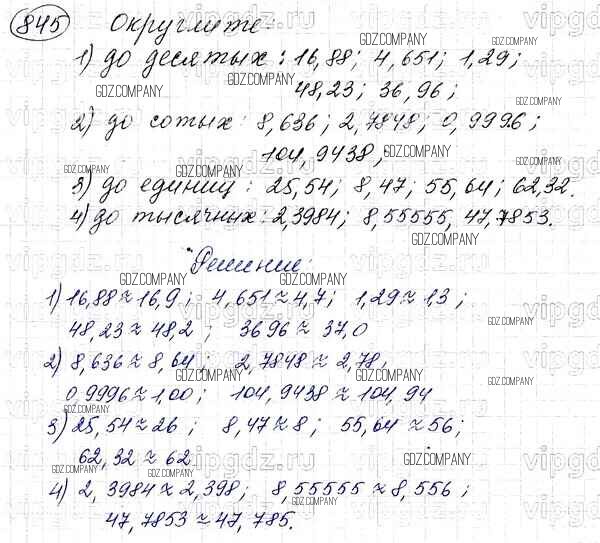 845 Округлите:
1) до десятых: 16,88; 4,651; 1,29;
48,23; 36,96;
2) до сотых: 8,636; 2,7848; 0,9996;
104,9438;
3) до единиц: 25,54; 8,47; 55,64; 62,32.
4) до тысячных: 2,3984; 8,55555, 47,7853.
Решение:
1) 16,88 ≈ 16,9; 4,651 ≈ 4,7; 1,29 ≈ 1,3;
48,23 ≈ 48,2; 3696 ≈ 37,0
2) 8,636 ≈ 8,64; 2,7848 ≈ 2,78,
0,9996 ≈ 1,00; 104,9438 ≈ 104,94
3) 25,54 ≈ 26; 8,47 ≈ 8; 55,64 ≈ 56;
62,32 ≈ 62
4) 2,3984 ≈ 2,398; 8,55555 ≈ 8,556;
47,7853 ≈ 47,785.
GDZ.COMPANY
vipgdz.ru